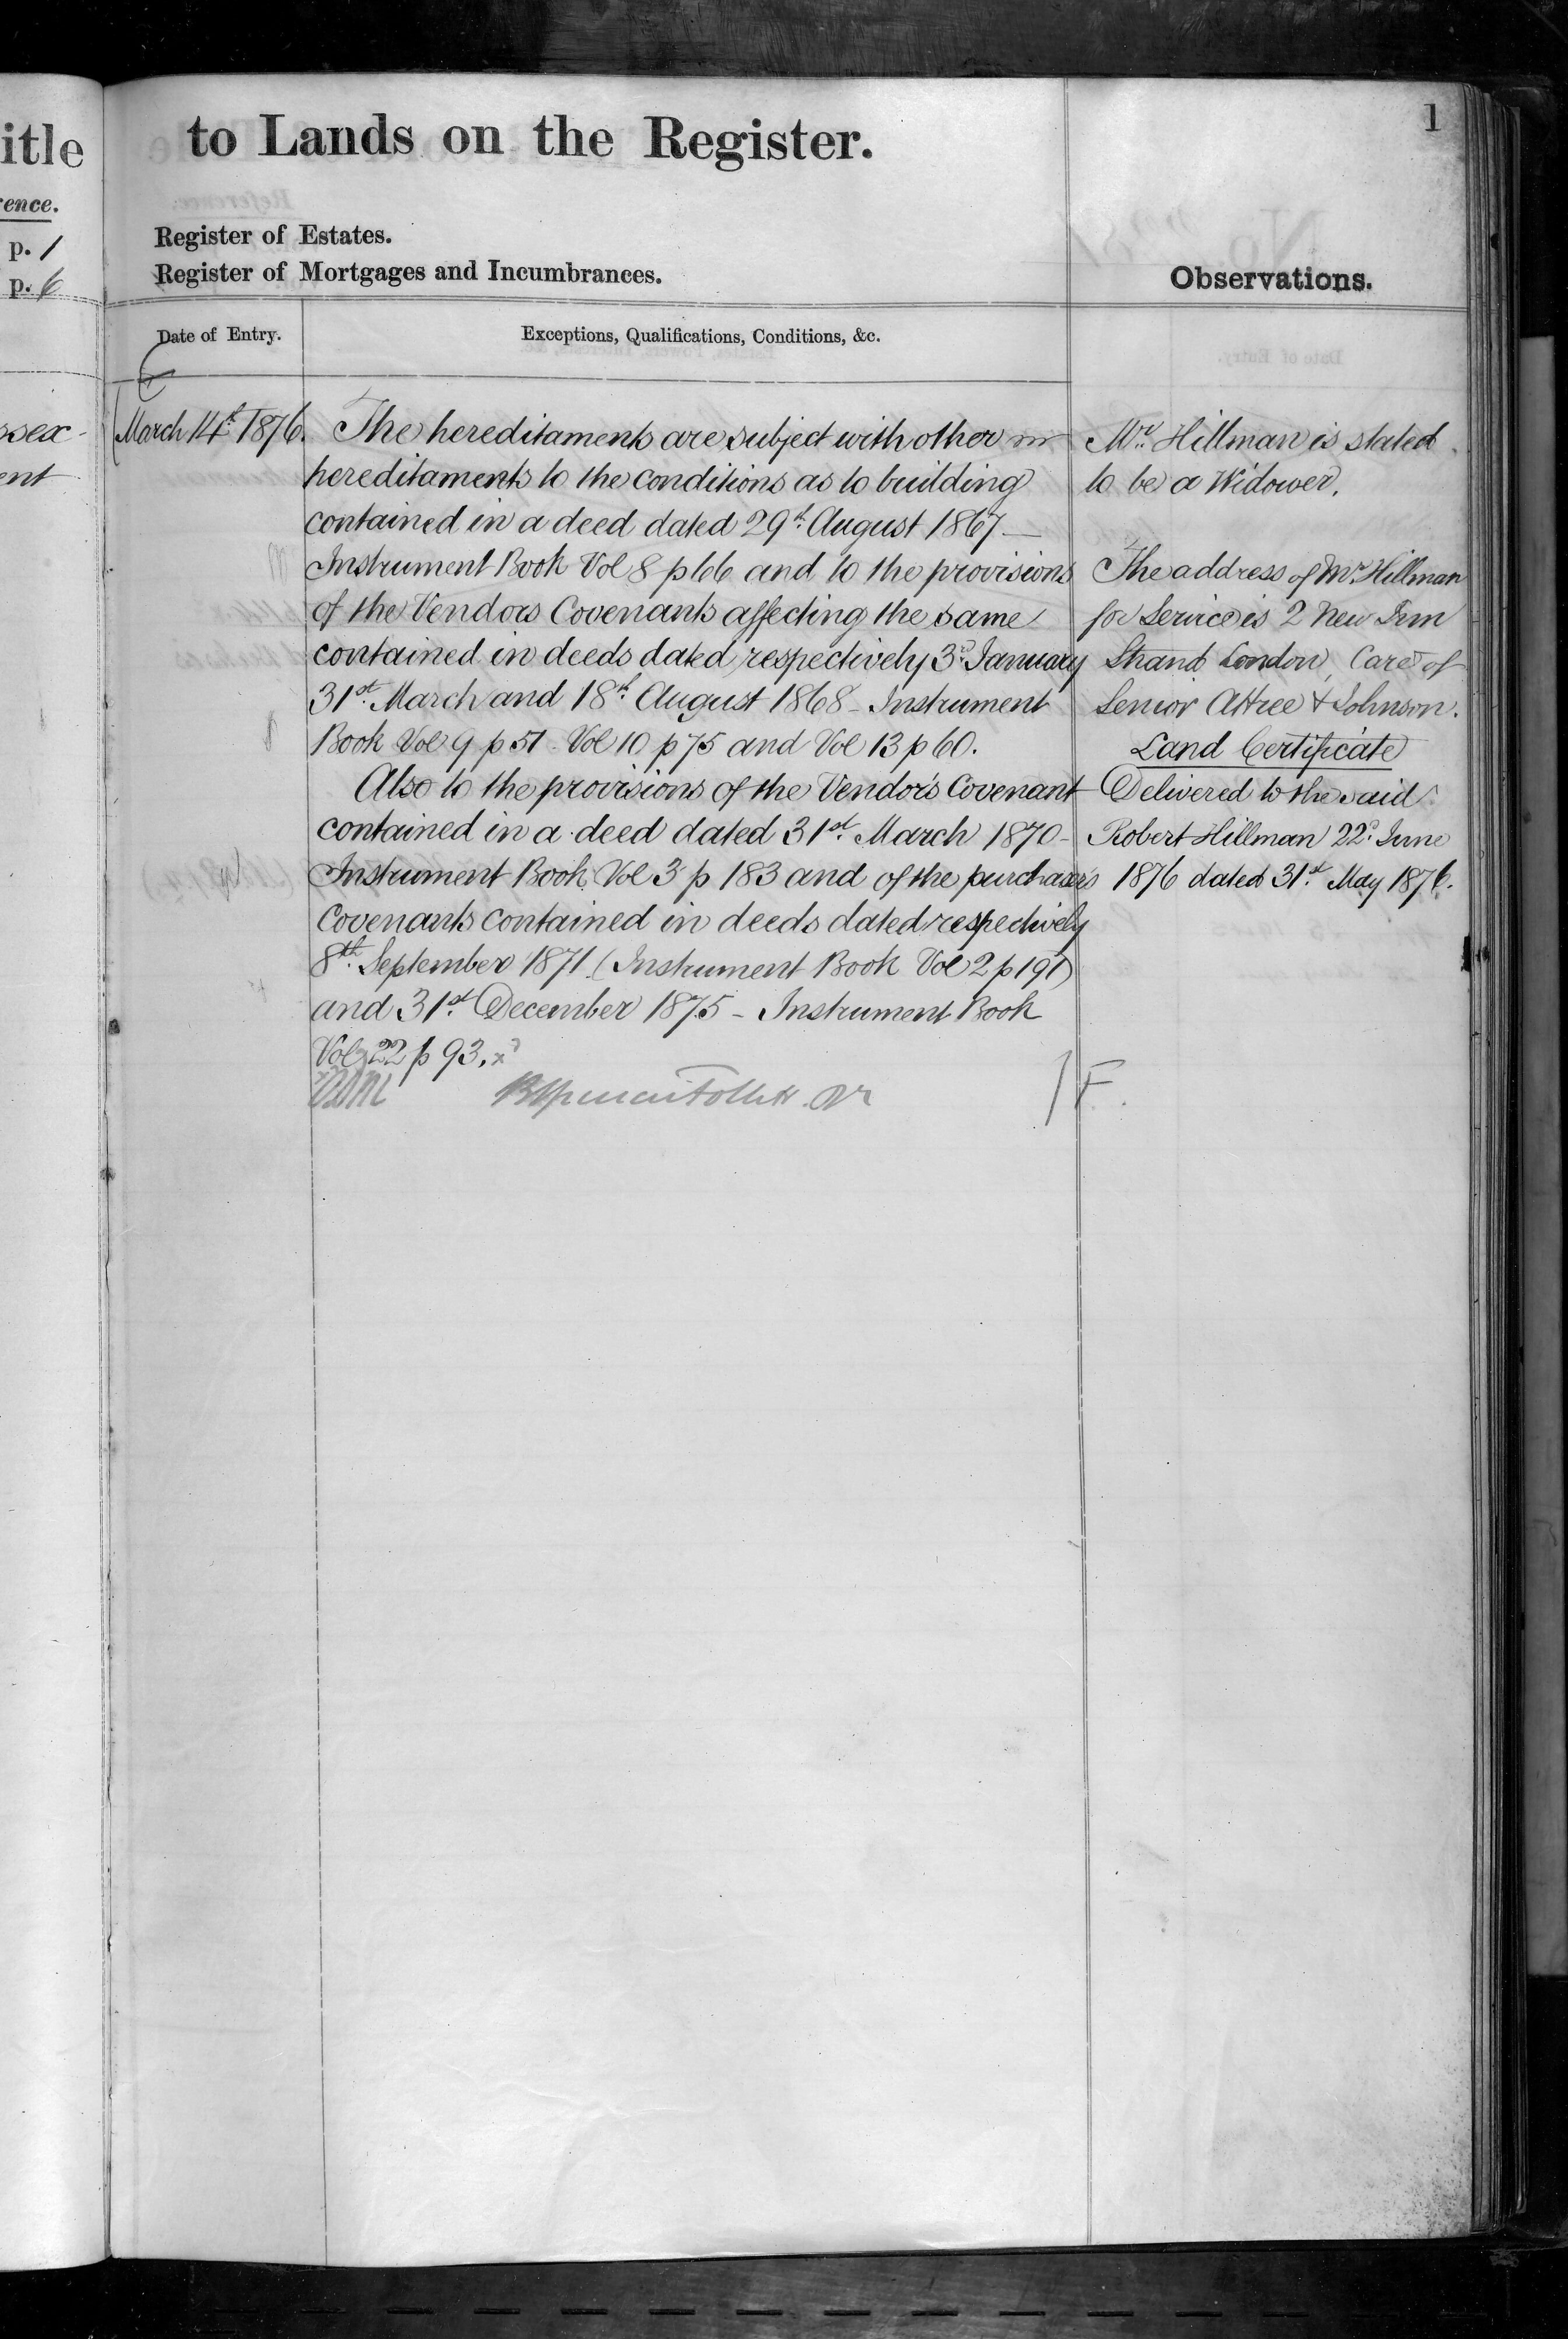 itle
to Lands on the Register.
1
ence.
p. 1
p. 6
Register of Estates.
Register of Mortgages and Incumbrances.
Observations.
Date of Entry.
Exceptions, Qualifications, Conditions, &c.
ssex-
ent
March 14th 1876.
The hereditaments are subject with other
hereditaments to the conditions as to building
contained in a deed dated 29th August 1867—
Instrument Book Vol 8 p 66 and to the provisions
of the Vendors Covenants affecting the same
contained in deeds dated respectively 3d January
31st March and 18th August 1868 - Instrument
Book Vol 9 p 51 Vol 10 p 75 and Vol 13 p 60.
Also to the provisions of the Vendor's Covenant
contained in a deed dated 31st March 1870 -
Instrument Book Vol 3 p 183 and of the purchaser's
Covenants contained in deeds dated respectively
8th September 1871 (Instrument Book Vol 2 p 191)
and 31st December 1875 - Instrument Book
Vol 22 p 93. x
F.
Mr Hillman is stated
to be a Widower.
The address of Mr Hillman
for Service is 2 New Inn
Strand London, Care of
Senior Attree & Johnson.
Land Certificate
Delivered to the said
Robert Hillman 22d June
1876 dated 31st May 1876.